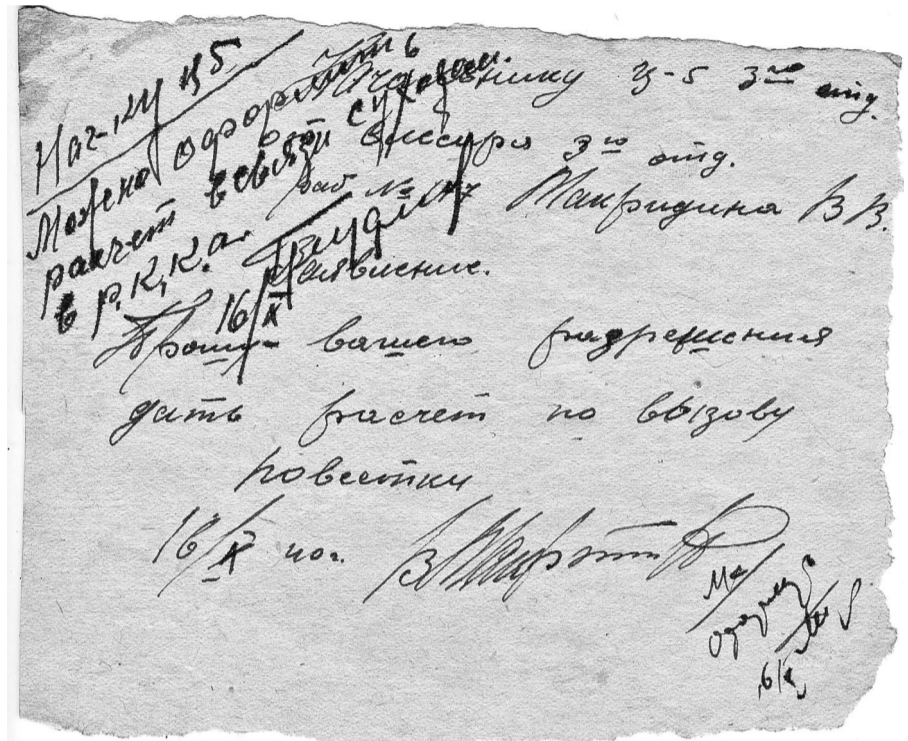 Нач-ку ц 5.
Можно оформить
расчет в связи с уходом
в р.К,К.а.
16/X
Начальнику ц-5 3го отд.
от 3го отд.
раб № Макридина В В.
Заявление.
Прошу вашего разрешения
дать расчет по вызову
повестки
16/X 40г.
16/X